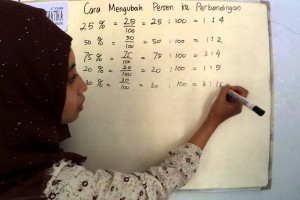 Cara Mengubah Persen ke Perbandingan
25 % = 25/100 = 25 : 100 = 1 : 4
50 % = 50/100 = 50 : 100 = 1 : 2
75 % = 75/100 = 75 : 100 = 3 : 4
20 % = 20/100 = 20 : 100 = 1 : 5
30 % = 30/100 = 30 : 100 = 3 : 10